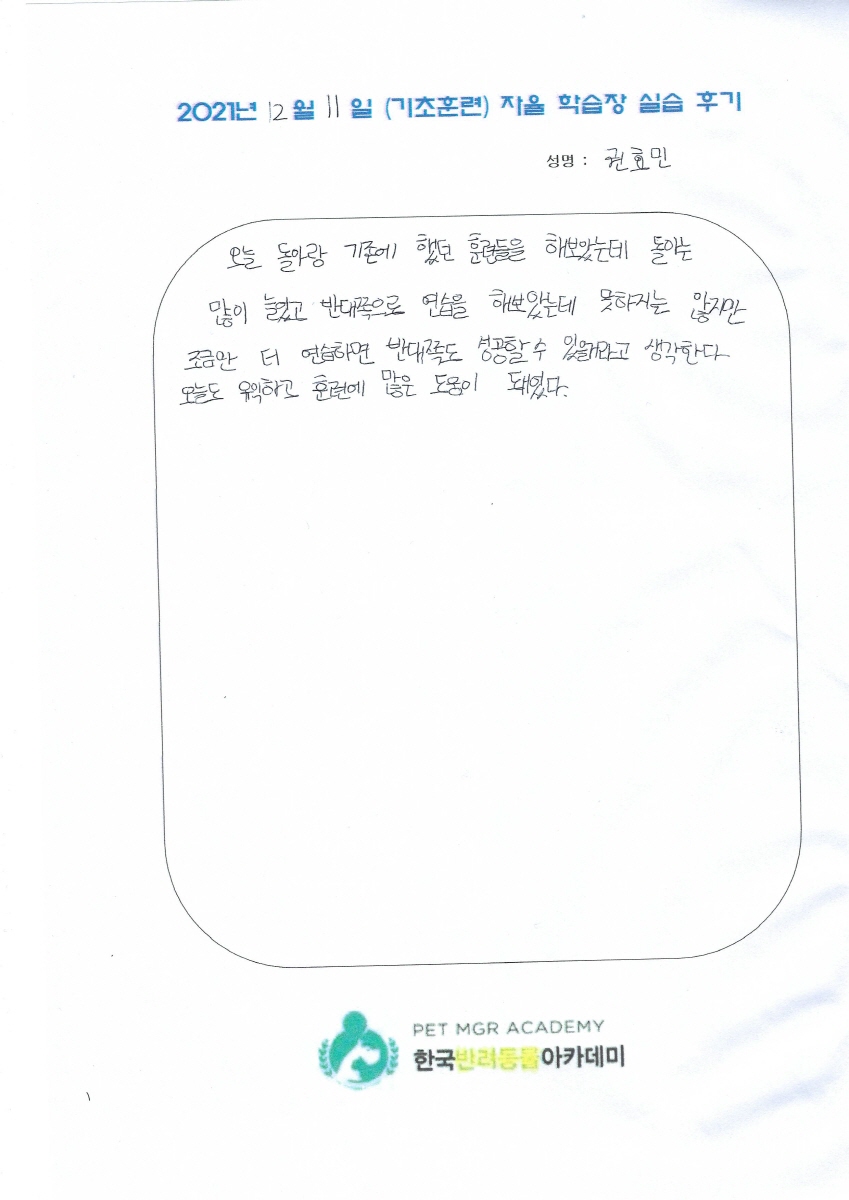 2021년 12월 11일 (기초훈련) 자율 학습장 실습 후기
성명 : 권효민
오늘 돌아랑 기존에 했던 훈련들을 해보았는데 돌아는
많이 늘었고 반대쪽으로 연습을 해보았는데 못하지는 않지만
조금만 더 연습하면 반대쪽도 성공할 수 있을거라고 생각한다
오늘도 유익하고 훈련에 많은 도움이 돼었다.
PET MGR ACADEMY
한국반려동물아카데미